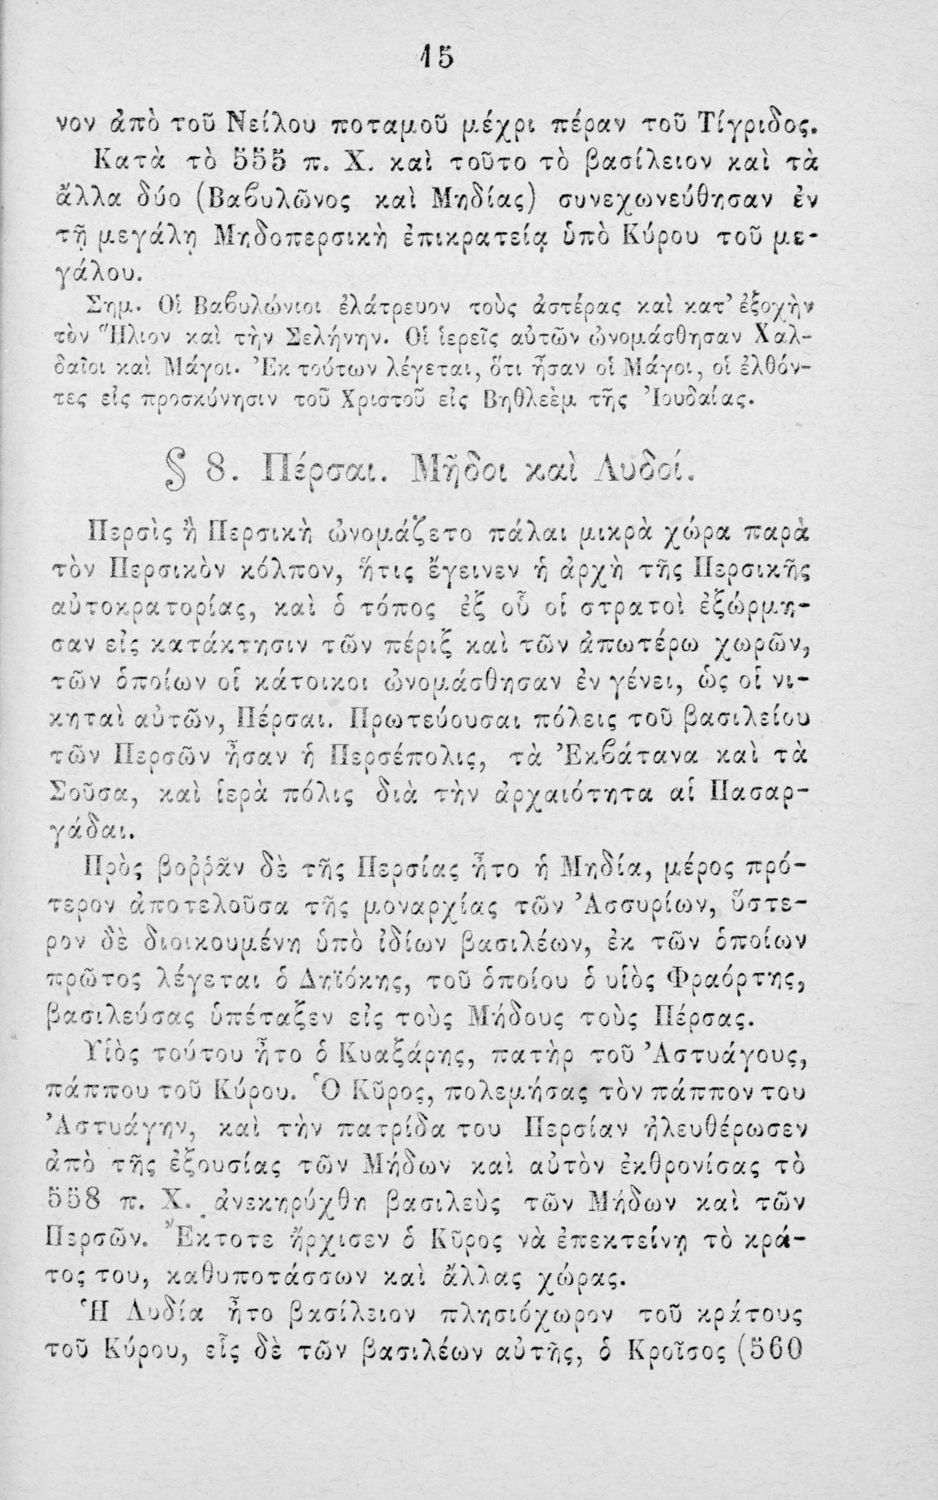 15
νον ἀπὸ τοῦ Νείλου ποταμοῦ μέχρι πέραν τοῦ Τίγριδος.
Κατὰ τὸ 555 π. Χ. καὶ τοῦτο τὸ βασίλειον καὶ τὰ
ἄλλα δύο (Βαβυλῶνος καὶ Μηδίας) συνεχωνεύθησαν ἐν
τῇ μεγάλῃ Μηδοπερσικὴ ἐπικρατείᾳ ὑπὸ Κύρου τοῦ με-
γάλου.
Σημ. Οἱ Βαβυλώνιοι ἐλάτρευον τοὺς ἀστέρας καὶ κατ' ἐξοχὴν
τὸν Ἥλιον καὶ τὴν Σελήνην. Οἱ ἱερεῖς αὐτῶν ὠνομάσθησαν Χαλ-
δαῖοι καὶ Μάγοι. Ἐκ τούτων λέγεται, ὅτι ἦσαν οἱ Μάγοι, οἱ ἐλθόν-
τες εἰς προσκύνησιν τοῦ Χριστοῦ εἰς Βηθλεὲμ τῆς Ἰουδαίας.
§ 8. Πέρσαι. Μῆδοι καὶ Λυδοί.
Περσὶς ἢ Περσικὴ ὠνομάζετο πάλαι μικρὰ χώρα παρὰ
τὸν Περσικὸν κόλπον, ἥτις ἔγεινεν ἡ ἀρχὴ τῆς Περσικῆς
αὐτοκρατορίας, καὶ ὁ τόπος ἐξ οὗ οἱ στρατοὶ ἐξώρμη-
σαν εἰς κατάκτησιν τῶν πέριξ καὶ τῶν ἀπωτέρω χωρῶν,
τῶν ὁποίων οἱ κάτοικοι ὠνομάσθησαν ἐν γένει, ὡς οἱ νι-
κηταὶ αὐτῶν, Πέρσαι. Πρωτεύουσαι πόλεις τοῦ βασιλείου
τῶν Περσῶν ἦσαν ἡ Περσέπολις, τὰ Ἐκβάτανα καὶ τὰ
Σοῦσα, καὶ ἱερὰ πόλις διὰ τὴν ἀρχαιότητα αἱ Πασαρ-
γάδαι.
Πρὸς βοῤῥᾶν δὲ τῆς Περσίας ἦτο ἡ Μηδία, μέρος πρό-
τερον ἀποτελοῦσα τῆς μοναρχίας τῶν Ἀσσυρίων, ὕστε-
ρον δὲ διοικουμένη ὑπὸ ἰδίων βασιλέων, ἐκ τῶν ὁποίων
πρῶτος λέγεται ὁ Δηϊόκης, τοῦ ὁποίου ὁ υἱὸς Φραόρτης,
βασιλεύσας ὑπέταξεν εἰς τοὺς Μήδους τοὺς Πέρσας.
Υἱὸς τούτου ἦτο ὁ Κυαξάρης, πατὴρ τοῦ Ἀστυάγους,
πάππου τοῦ Κύρου. Ὁ Κῦρος, πολεμήσας τὸν πάππον του
Ἀστυάγην, καὶ τὴν πατρίδα του Περσίαν ἠλευθέρωσεν
ἀπὸ τῆς ἐξουσίας τῶν Μήδων καὶ αὐτὸν ἐκθρονίσας τὸ
558 π. Χ. ἀνεκηρύχθη βασιλεὺς τῶν Μήδων καὶ τῶν
Περσῶν. Ἔκτοτε ἤρχισεν ὁ Κῦρος νὰ ἐπεκτείνῃ τὸ κρά-
τος του, καθυποτάσσων καὶ ἄλλας χώρας.
Ἡ Λυδία ἦτο βασίλειον πλησιόχωρον τοῦ κράτους
τοῦ Κύρου, εἷς δὲ τῶν βασιλέων αὐτῆς, ὁ Κροῖσος (560